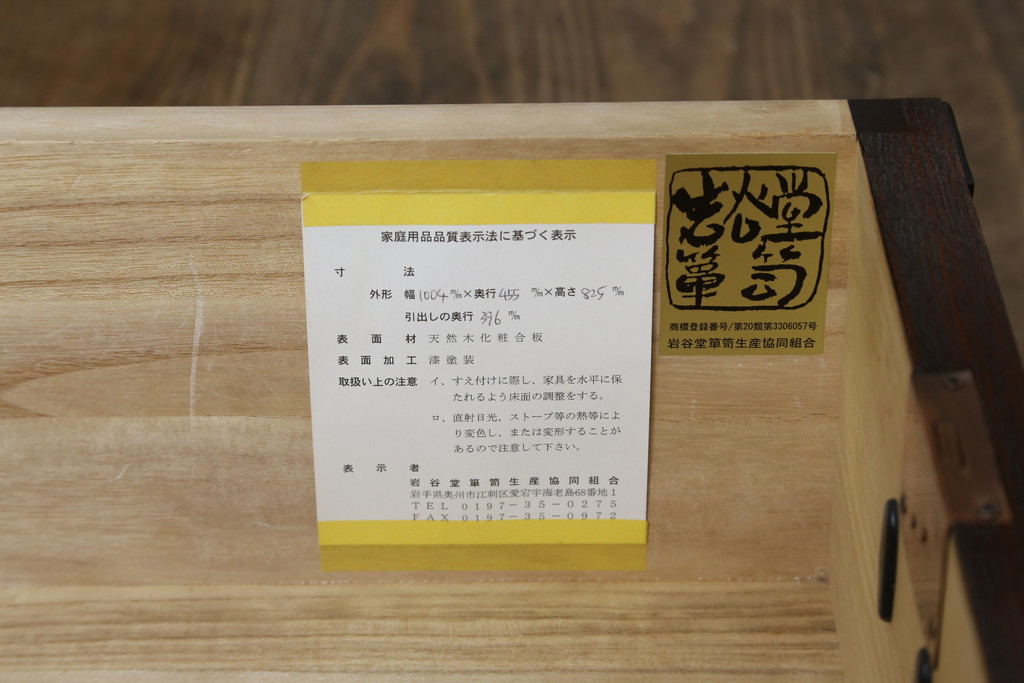 家庭用品品質表示法に基づく表示
寸法
外形 幅1004㎜×奥行455㎜×高さ825㎜
引出しの奥行 396㎜
表面材 天然木化粧合板
表面加工 漆塗装
取扱い上の注意 イ、すえ付けに際し、家具を水平に保
たれるよう床面の調整をする。
ロ、直射日光、ストーブ等の熱等によ
り変色し、または変形することが
あるので注意して下さい。
表示者
岩谷堂箪笥生産協同組合
岩手県奥州市江刺区愛宕字海老島68番地1
TEL 0197-35-0275
FAX 0197-35-0972
岩谷堂
箪笥
商標登録番号/第20類第3306057号
岩谷堂箪笥生産協同組合